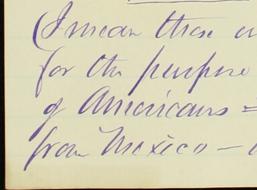 (I mean those
for the purpose
of Americans =
from Mexico —